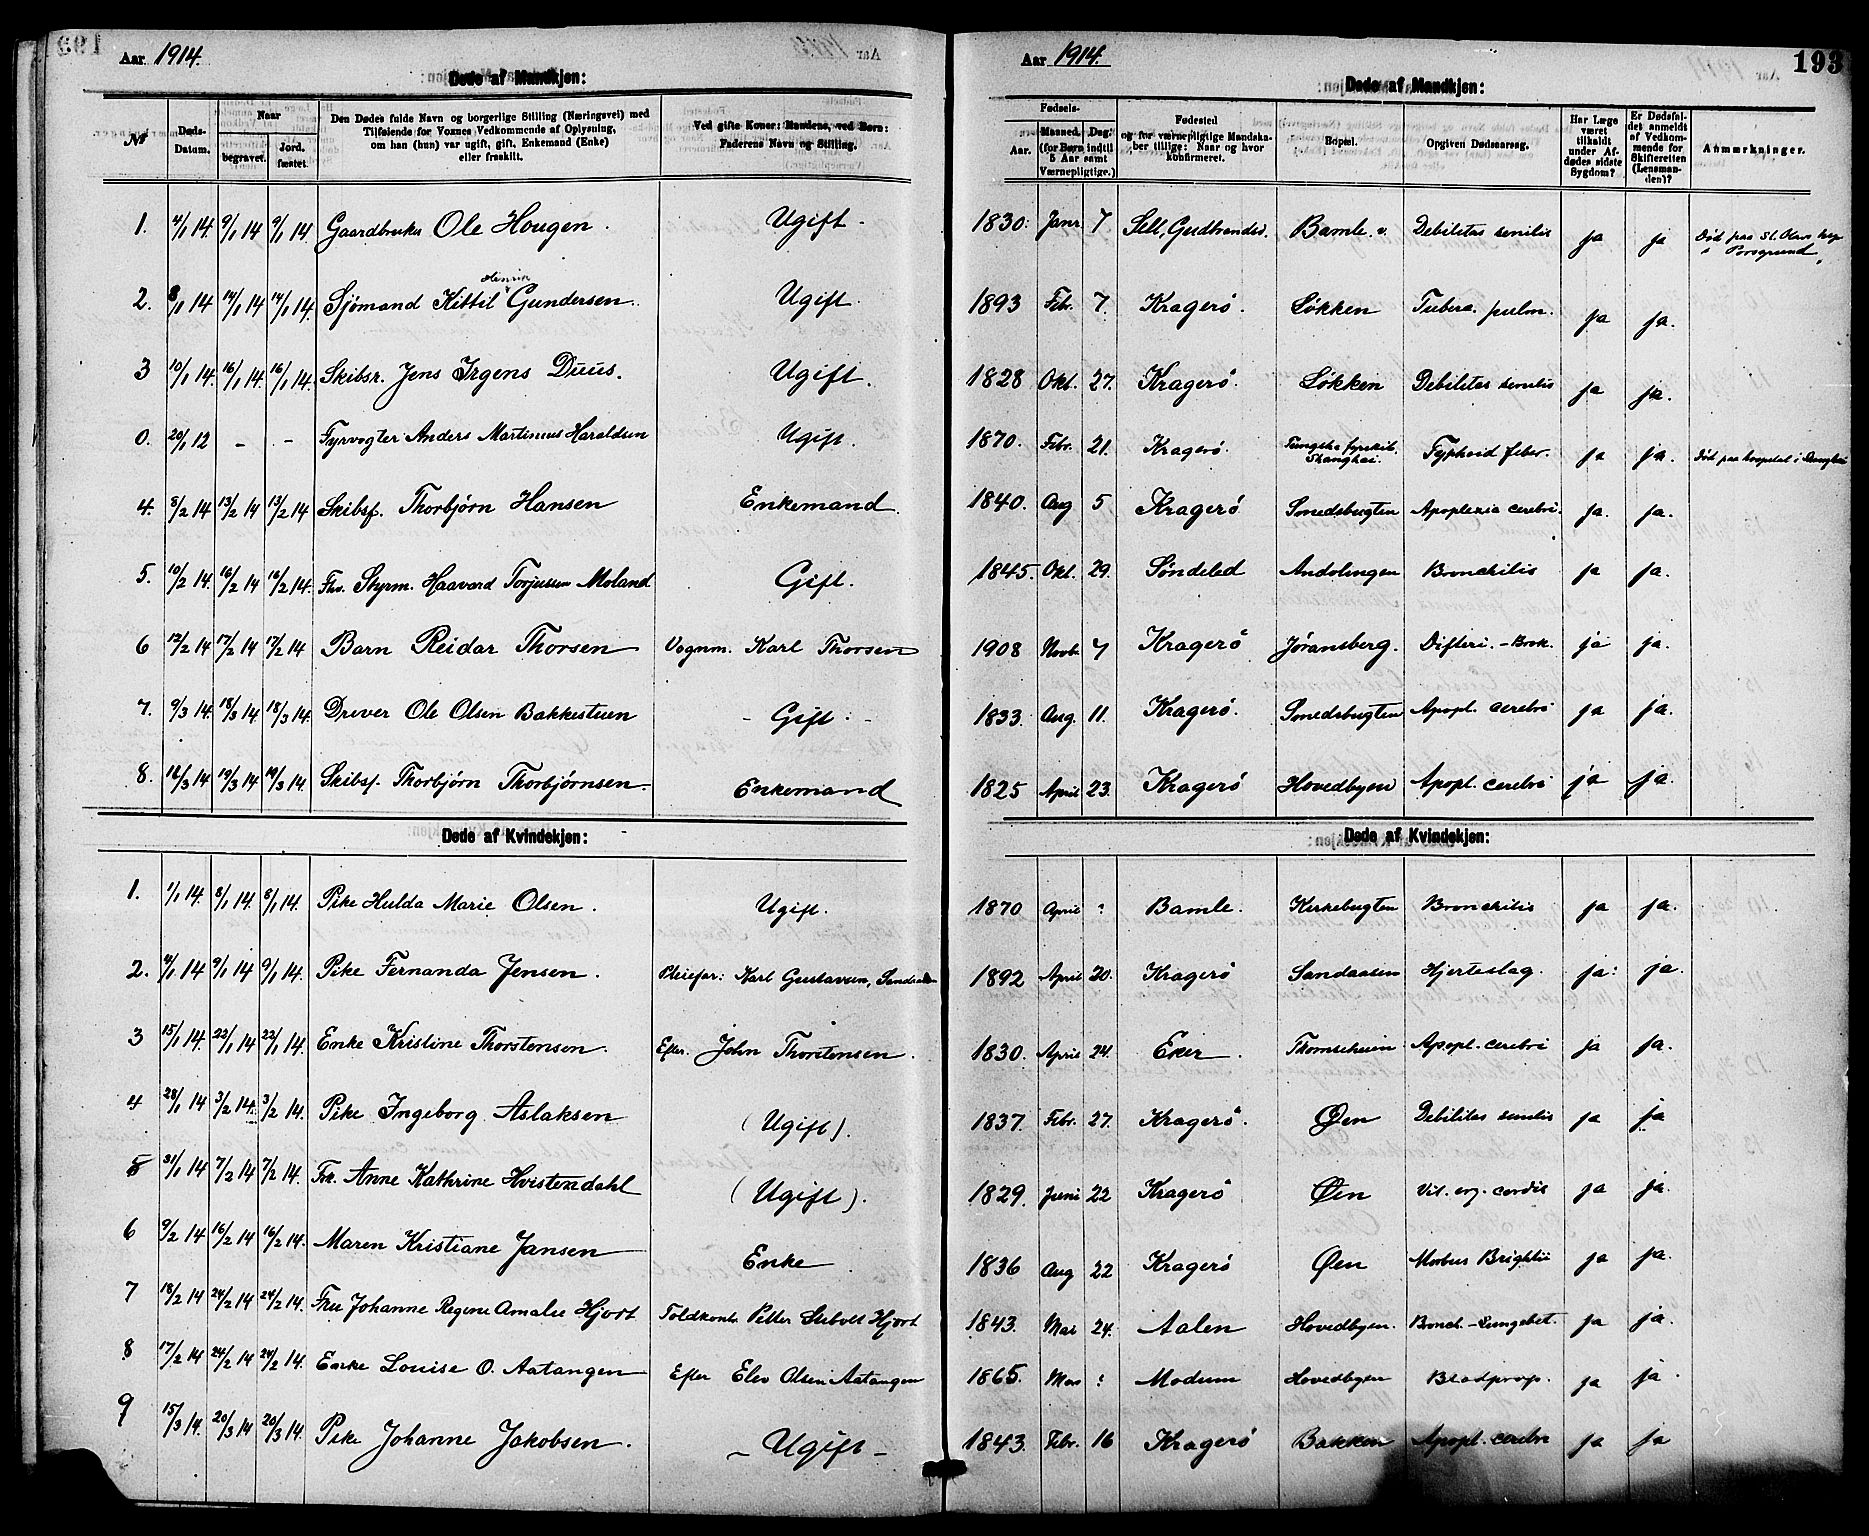 Aar 1914.
Døde af Mandkjøn:
№
Døds-Datum.
Naar
begravet.
Jord-fæstet.
Den Dødes fulde Navn og borgerlige Stilling (Næringsvei) med
Tilføiende for Voxnes Vedkommende af Oplysning,
om han (hun) var ugift, gift, Enkemand (Enke)
eller fraskilt.
Ved gifte Koner: Mandens, ved Børn:
Faderens Navn og Stilling.
1. 4/1 14. 9/1 14 9/1 14. Gaardbruker Ole Hougen. Ugift.
2. 8/1 14 14/1 14 14/1 14. Sjömand Kittil Henrik Gundersen. Ugift.
3 10/1 14. 16/1 14. 16/1 14. Skibsr. Jens Irgens Duus. Ugift.
0. 20/1 12 - - Fyrvogter Anders Martinius Haraldsen Ugift.
4. 8/2 14 13/2 14 13/2 14 Skibsf. Thorbjørn Hansen Enkemand.
5. 10/2 14. 16/2 14 16/2 14. Fhv. Styrm. Haavard Torjussen Moland Gift.
6 12/2 14. 17/2 14 17/2 14 Barn Reidar Thorsen Vognm. Karl Thorsen
7. 9/3 14. 18/3 14 18/3 14. Drever Ole Olsen Bakkestuen - Gift: -
8. 16/3 14 19/3 14 19/3 14. Skibsf. Thorbjörn Thorbjörnsen Enkemand
Døde af Kvindekjøn:
1. 1/1 14. 8/1 14. 8/1 14. Pike Hulda Marie Olsen. Ugift.
2. 4/1 14 9/1 14 9/1 14. Pike Fernanda Jensen. Pleiefar: Karl Gustavsen, Sandaasen
3 15/1 14. 22/1 14 22/1 14. Enke Kristine Thorstensen. Efter. John Thorstensen.
4 28/1 14 3/2 14. 3/2 14. Pike Ingeborg Aslaksen (Ugift).
5 31/1 14 7/2 14 7/2 14. Frk. Anne Kathrine Hvistendahl (Ugift).
6 9/2 14 16/2 14 16/2 14. Maren Kristiane Jansen Enke
7 18/2 14 24/2 14 24/2 14. Fru Johanne Regine Amalie Hjort Toldkontr. Petter Sibolt Hjort
8 17/2 14 24/2 14 24/2 14. Enke Louise O. Aatangen Efter Elev Olsen Aatangen
9 15/3 14. 20/3 14 20/3 14. Pike Johanne Jakobsen. - Ugift -
Aar 1914.
193
Døde af Mandkjøn:
Fødsels-
Aar.
Maaned. Dag:
(for Børn indtil
5 Aar samt
Værnepligtige.)
Fødested
og for værnepligtige Mandska-
ber tillige: Naar og hvor
konfirmeret.
Bopæl.
Opgiven Dødsaarsag.
Har Læge
været
tilkaldt
under Af-
dødes sidste
Sygdom?
Er Dødsfal-
det anmeldt
af Vedkom-
mende for
Skifteretten
(Lensman-
den)?
Anmærkninger.
1830. Janr 7 Sell, Gudbrandsd. Bamle. Debilitas senilis ja ja Död paa St. Olavs hosp. i Porsgrund.
1893 Febr. 7. Kragerö. Løkken Tuberc. pulm. ja ja.
1828 Okt. 27. Kragerö. Løkken Debilitas senilis ja ja.
1870. Febr. 21. Kragerö. Shanghai. Typhoid feber. ja ja. Död paa hospital i Shanghai
1840. Aug 5 Kragerö Smedsbugten Apoplexia cerebri. ja. ja.
1845. Okt. 29. Söndeled Andölingen Bronchitis ja ja.
1908 Novbr 7 Kragerö Jøransberg. Difteri. - Bronk. ja ja.
1833. Aug. 11. Kragerö. Smedsbugten Apopl. cerebri ja ja.
1825 April 23. Kragerö Hovedbyen Apopl. cerebri ja ja.
Døde af Kvindekjøn:
1870 April ? Bamle. Kirkebugten Bronchitis ja ja.
1892 April 20. Kragerö Sandaasen Hjerteslag. ja: ja.
1830. April 24. Eker. Thomseheien Apopl. cerebri ja ja.
1837. Febr. 27. Kragerö. Øen Debilitas senilis ja ja
1829. Juni 22 Kragerö Øen Vit. org. cordis ja ja.
1836 Aug 22 Kragerö Øen Morbus Brightii ja ja.
1843. Mai 24. Aalen Hovedbyen. Bronch. - Lungebet. ja ja.
1865. Mars ? Modum Hovedbyen Blodprop. ja ja.
1843. Febr. 16 Kragerö Bakken Apopl. cerebri ja ja